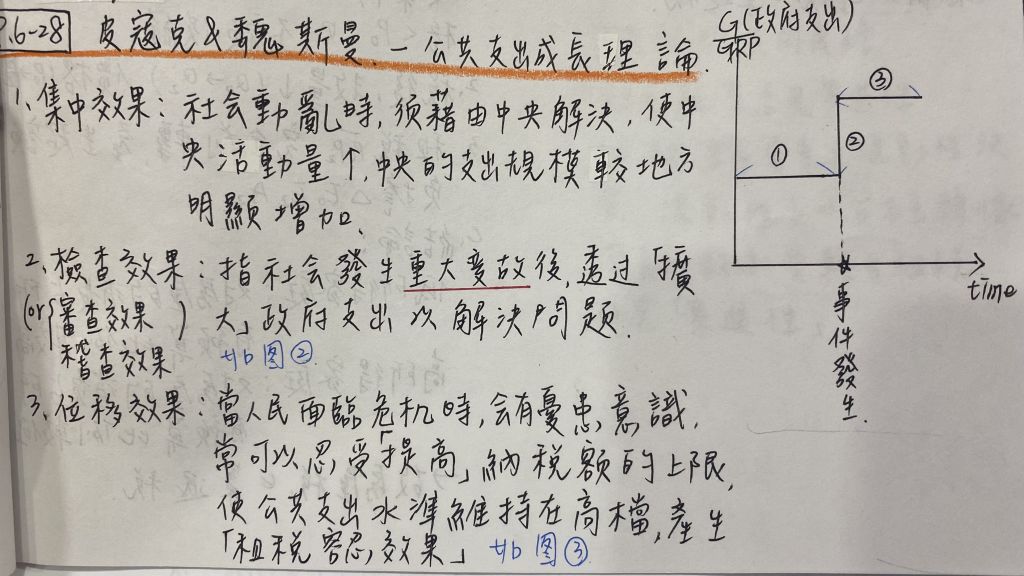 P.6-28 皮寇克&魏斯曼.－公共支出成長理論.
1、集中效果：社會動亂時，須藉由中央解決，使中
央活動量↑，中央的支出規模較地方
明顯增加。
2、檢查效果：指社會發生重大變故後，透過「擴
(or 審查效果 ) 大」政府支出以解決問題.
稽查效果 如图②
3、位移效果：當人民面臨危机時，會有憂患意識，
常可以忍受「提高」納稅額的上限，
使公共支出水準維持在高檔，產生
「租稅容忍效果」 如图③
G(政府支出)
GRP
①
②
③
time
事件發生.